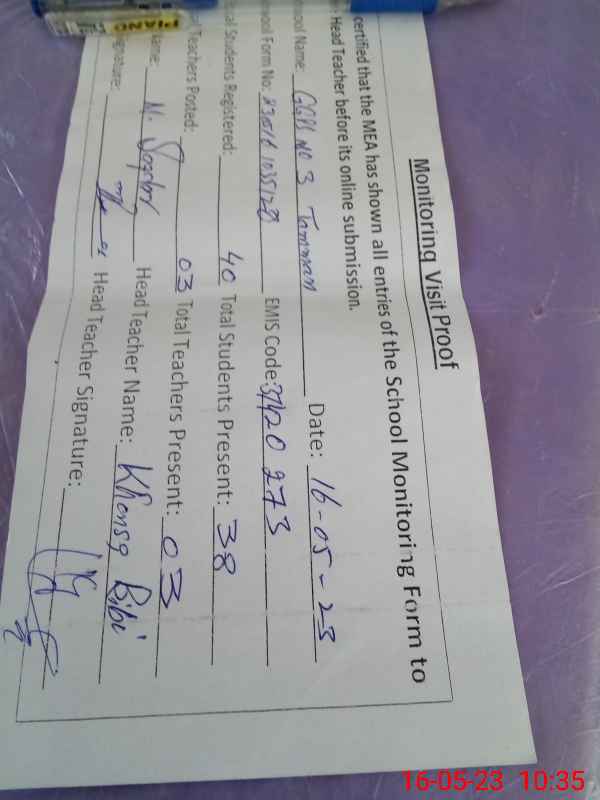 Monitoring Visit Proof
certified that the MEA has shown all entries of the School Monitoring Form to
Head Teacher before its online submission.
Name: GGPS NO 3 Tamman Date: 16-05-23
Form No: EMIS Code: 37120 273
Students Registered: 40 Total Students Present: 38
Teachers Posted: 03 Total Teachers Present: 03
Head Teacher Name: Khonsa Bibi
Head Teacher Signature:
PIANO
16-05-23 10:35